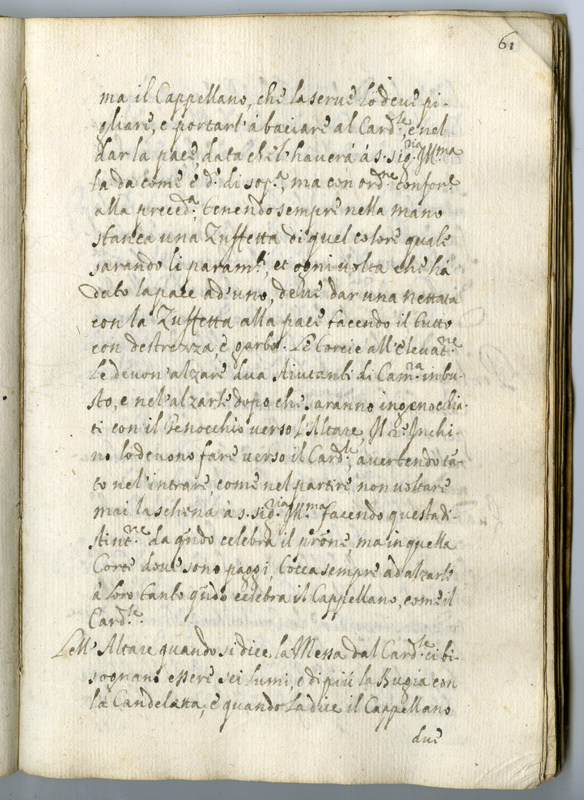 61
ma il Cappellano, che la serue lo deue pi-
gliare, e portarl' á baciare al Card.le, e nel
dar la pace data che l'hauerá á s. sig.ria Ill.ma
la da come é d.o di sop.a, ma con ord.ne conforē
alla preced.a, tenendo sempre nella mano
stanca una Zuffetta di quel colore quale
sarando li param.ti, et ogni uolta che há
dato la pace ad' uno, deue dar una nettata
con la Zuffetta alla pace facendo il tutto
con destrezza, é garbo. Le torcie all' eleuat.ne
le deuon' alzare dua Aiutanti di Cam.ra in bu-
sto, e nel' alzarle dopo che saranno ingenocchia-
ti con il Genocchio uerso l'Altare, Il p.o Inchi-
no lo deuono fare uerso il Card.le, auertendo tā-
to nel' intrare, come nel partire non uoltare
mai la schena á s. sig.ria Ill.ma facendo questa di-
stint.ne da q̄ndo celebra il prōne, ma in quella
Corte doue sono paggi, tocca sempre ad alzarle
á loro tanto q̄ndo celebra il Cappellano, come il
Card.le.
Nell' Altare quando si dice la Messa dal Card.le ci bi-
sognano essere sei lumi, e di piú la Bugia con
la Candeletta, é quando la dice il Cappellano
due